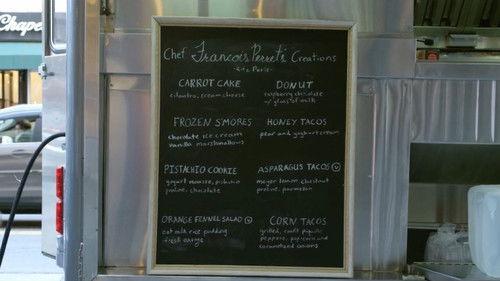 Chape
Chef Francois Perret's Creations
-Ritz Paris-
CARROT CAKE
cilantro, cream cheese
DONUT
raspberry chocolate
w/ glass of milk
FROZEN S'MORES
chocolate ice cream
vanilla marshmallows
HONEY TACOS
pear and yoghurt cream
PISTACHIO COOKIE
yogurt mousse, pistachio
praline, chocolate
ASPARAGUS TACOS V
meyer lemon, chestnut
praline, parmesan
ORANGE FENNEL SALAD V
oat milk rice pudding
fresh orange
CORN TACOS
grilled, confit piquillo
peppers, popcorn and
caramelized onions